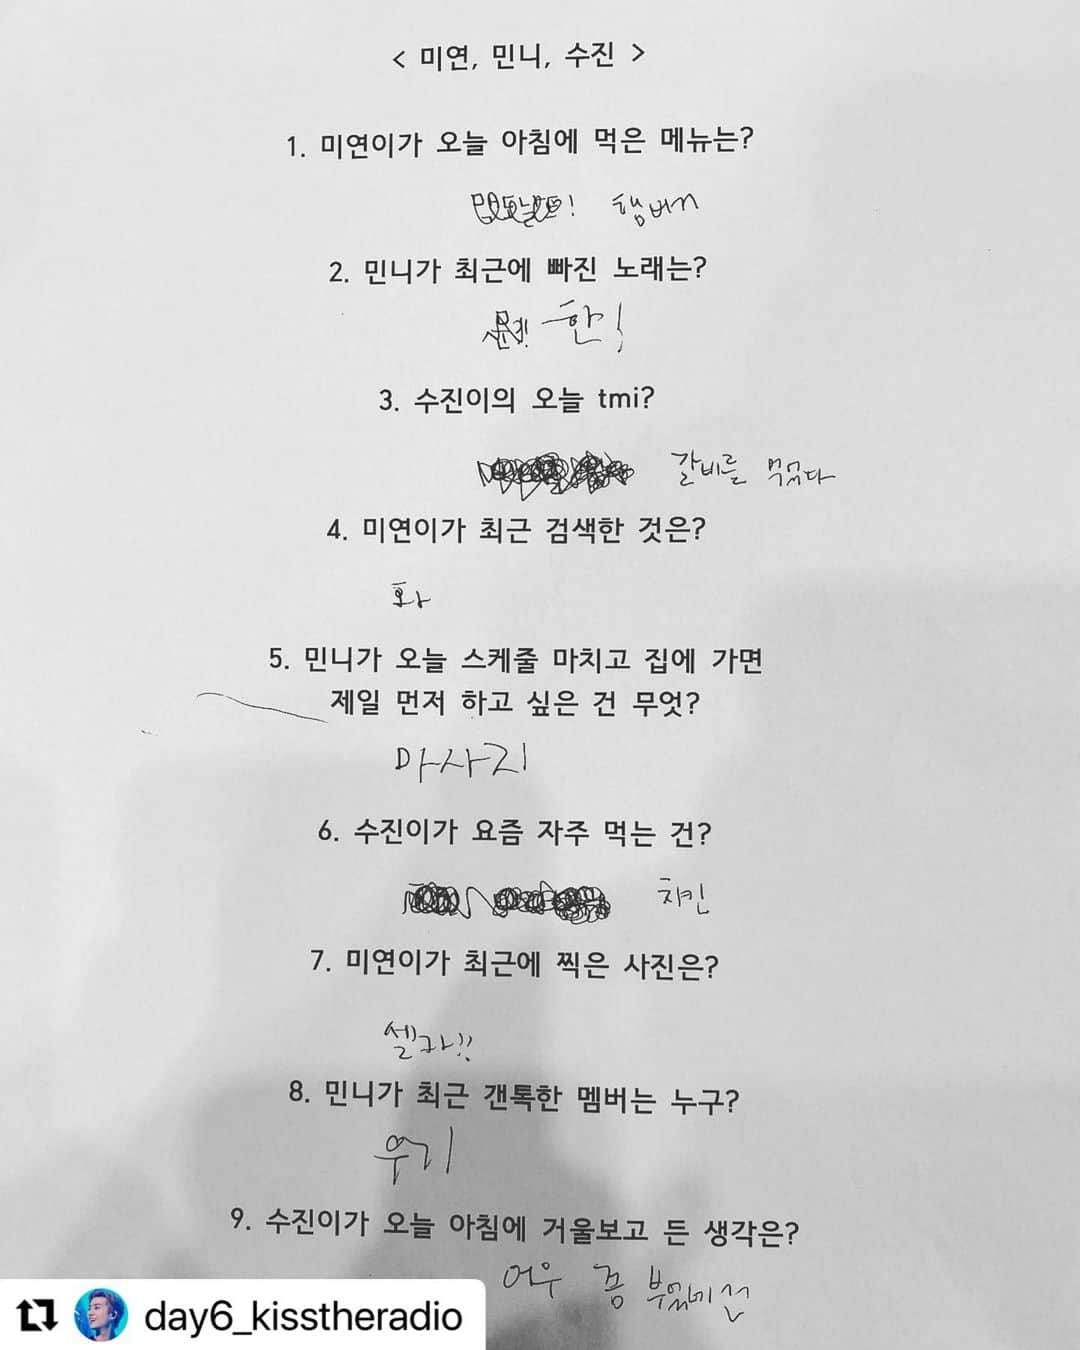 < 미연, 민니, 수진 >
1. 미연이가 오늘 아침에 먹은 메뉴는?
맥도날드! 햄버거
2. 민니가 최근에 빠진 노래는?
한!
3. 수진이의 오늘 tmi?
갈비를 먹었다
4. 미연이가 최근 검색한 것은?
화
5. 민니가 오늘 스케줄 마치고 집에 가면
제일 먼저 하고 싶은 건 무엇?
마사지
6. 수진이가 요즘 자주 먹는 건?
치킨
7. 미연이가 최근에 찍은 사진은?
셀카!!
8. 민니가 최근 갠톡한 멤버는 누구?
우기
9. 수진이가 오늘 아침에 거울보고 든 생각은?
어우 좀 부었네
day6_kisstheradio